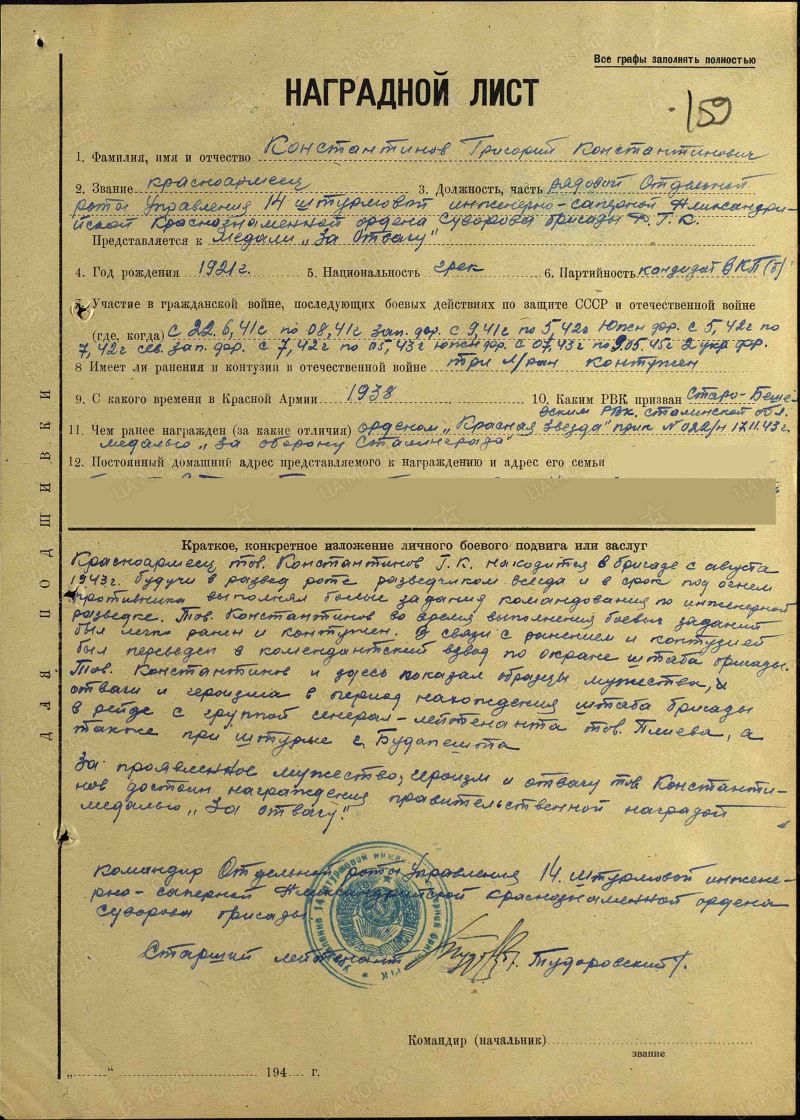 Все графы заполнять полностью
НАГРАДНОЙ ЛИСТ
159
1. Фамилия, имя и отчество Константинов Григорий Константинович
2. Звание красноармеец 3. Должность, часть рядовой Отдельной
роты Управления 14 штурмовой инженерно-саперной Александрий-
ской Краснознаменной ордена Суворова бригады Р.Г.К.
Представляется к Медали „За Отвагу"
4. Год рождения 1921г. 5. Национальность грек 6. Партийность кандидат ВКП(б)
7. Участие в гражданской войне, последующих боевых действиях по защите СССР и отечественной войне
(где, когда) с 22.6,41г по 08,41г зап. фр. с 9,41г по 5,42г Южн фр. с 5,42г по
7,42г сев. зап. фр. с 7,42г по 05,43г южн фр. с 07.43г по 9.05.45г 2 укр фр.
8 Имеет ли ранения и контузии в отечественной войне три л/ран контужен
9. С какого времени в Красной Армии 1938 10. Каким РВК призван Старо-Беше-
вским РВК. Сталинской обл.
11. Чем ранее награжден (за какие отличия) орденом „Красная Звезда" прик N 022/н 17.11.43г.
медалью „За оборону Сталинграда"
12. Постоянный домашний адрес представляемого к награждению и адрес его семьи
Краткое, конкретное изложение личного боевого подвига или заслуг
Красноармеец тов. Константинов Г.К. находится в бригаде с августа
1943г. будучи в развед роте разведчиком всегда и в срок под огнем
противника выполнял боевые задания командования по инженерной
разведке. Тов. Константинов во время выполнения боевых заданий
был легко ранен и контужен. В связи с ранением и контузией
был переведен в комендантский взвод по охране штаба бригады.
Тов. Константинов и здесь показал образцы мужества, и
отваги и героизма в период нахождения штаба бригады
в рейде с группой генерал-лейтенанта тов. Плиева, а
также при штурме г. Будапешта
За проявленное мужество, героизм и отвагу тов Константи-
нов достоин награждения правительственной наградой
медалью „За отвагу".
командир Отдельной роты Управления 14. штурмовой инжене-
рно-саперной Александрийской краснознаменной ордена
Суворова бригады
Старший лейтенант Тудоровский
Командир (начальник)
звание
„ " 194 г.
ДЛЯ ПОДШИВКИ